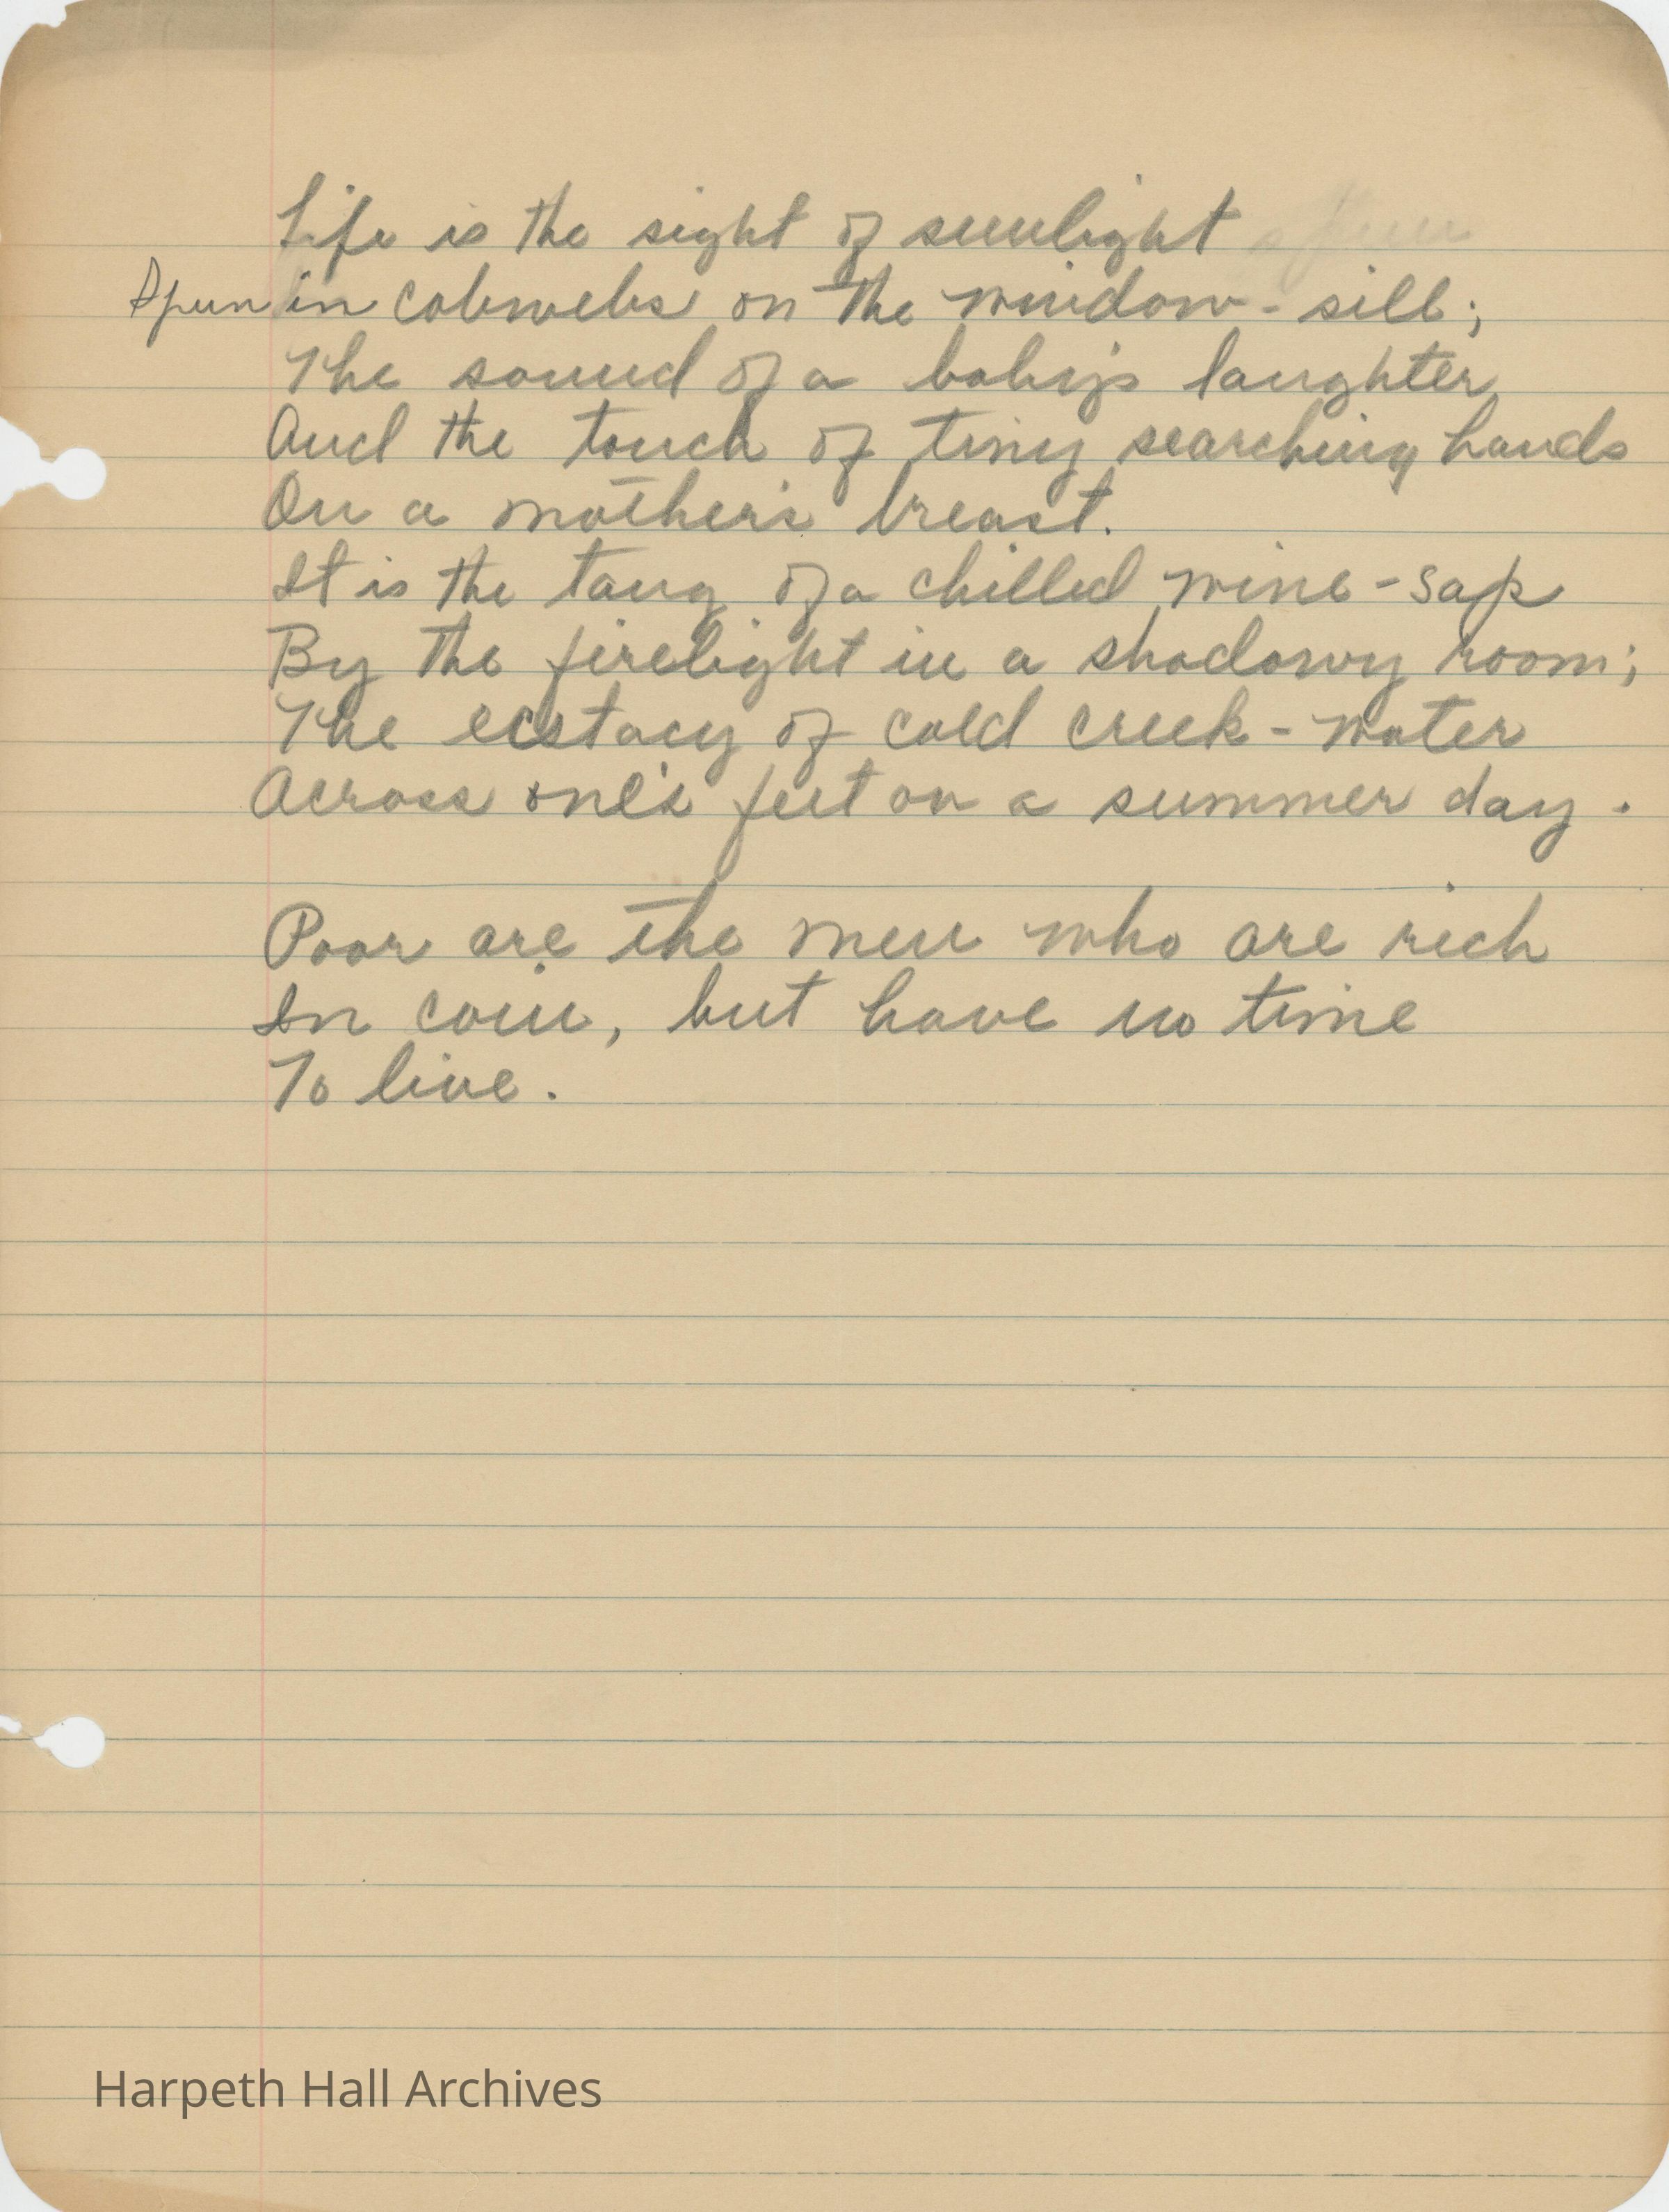 Life is the sight of sunlight
Spun in cobwebs on the window-sill;
The sound of a baby's laughter
And the touch of tiny searching hands
On a mother's breast.
It is the tang of a chilled wine-sap
By the firelight in a shadowy room;
The ecstacy of cold creek-water
Across one's feet on a summer day.
Poor are the men who are rich
In coin, but have no time
To live.
Harpeth Hall Archives